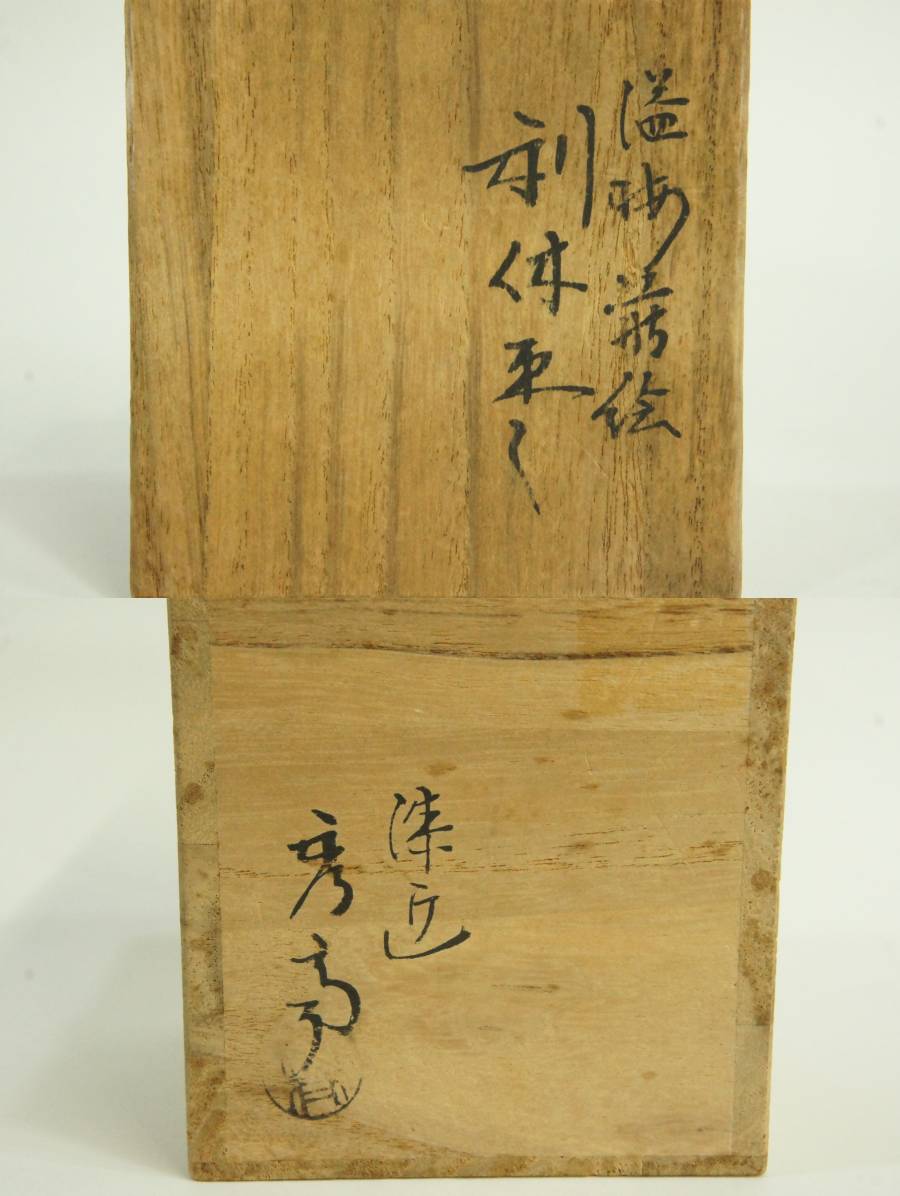 溢梅蒔絵
利休棗
漆匠
秀